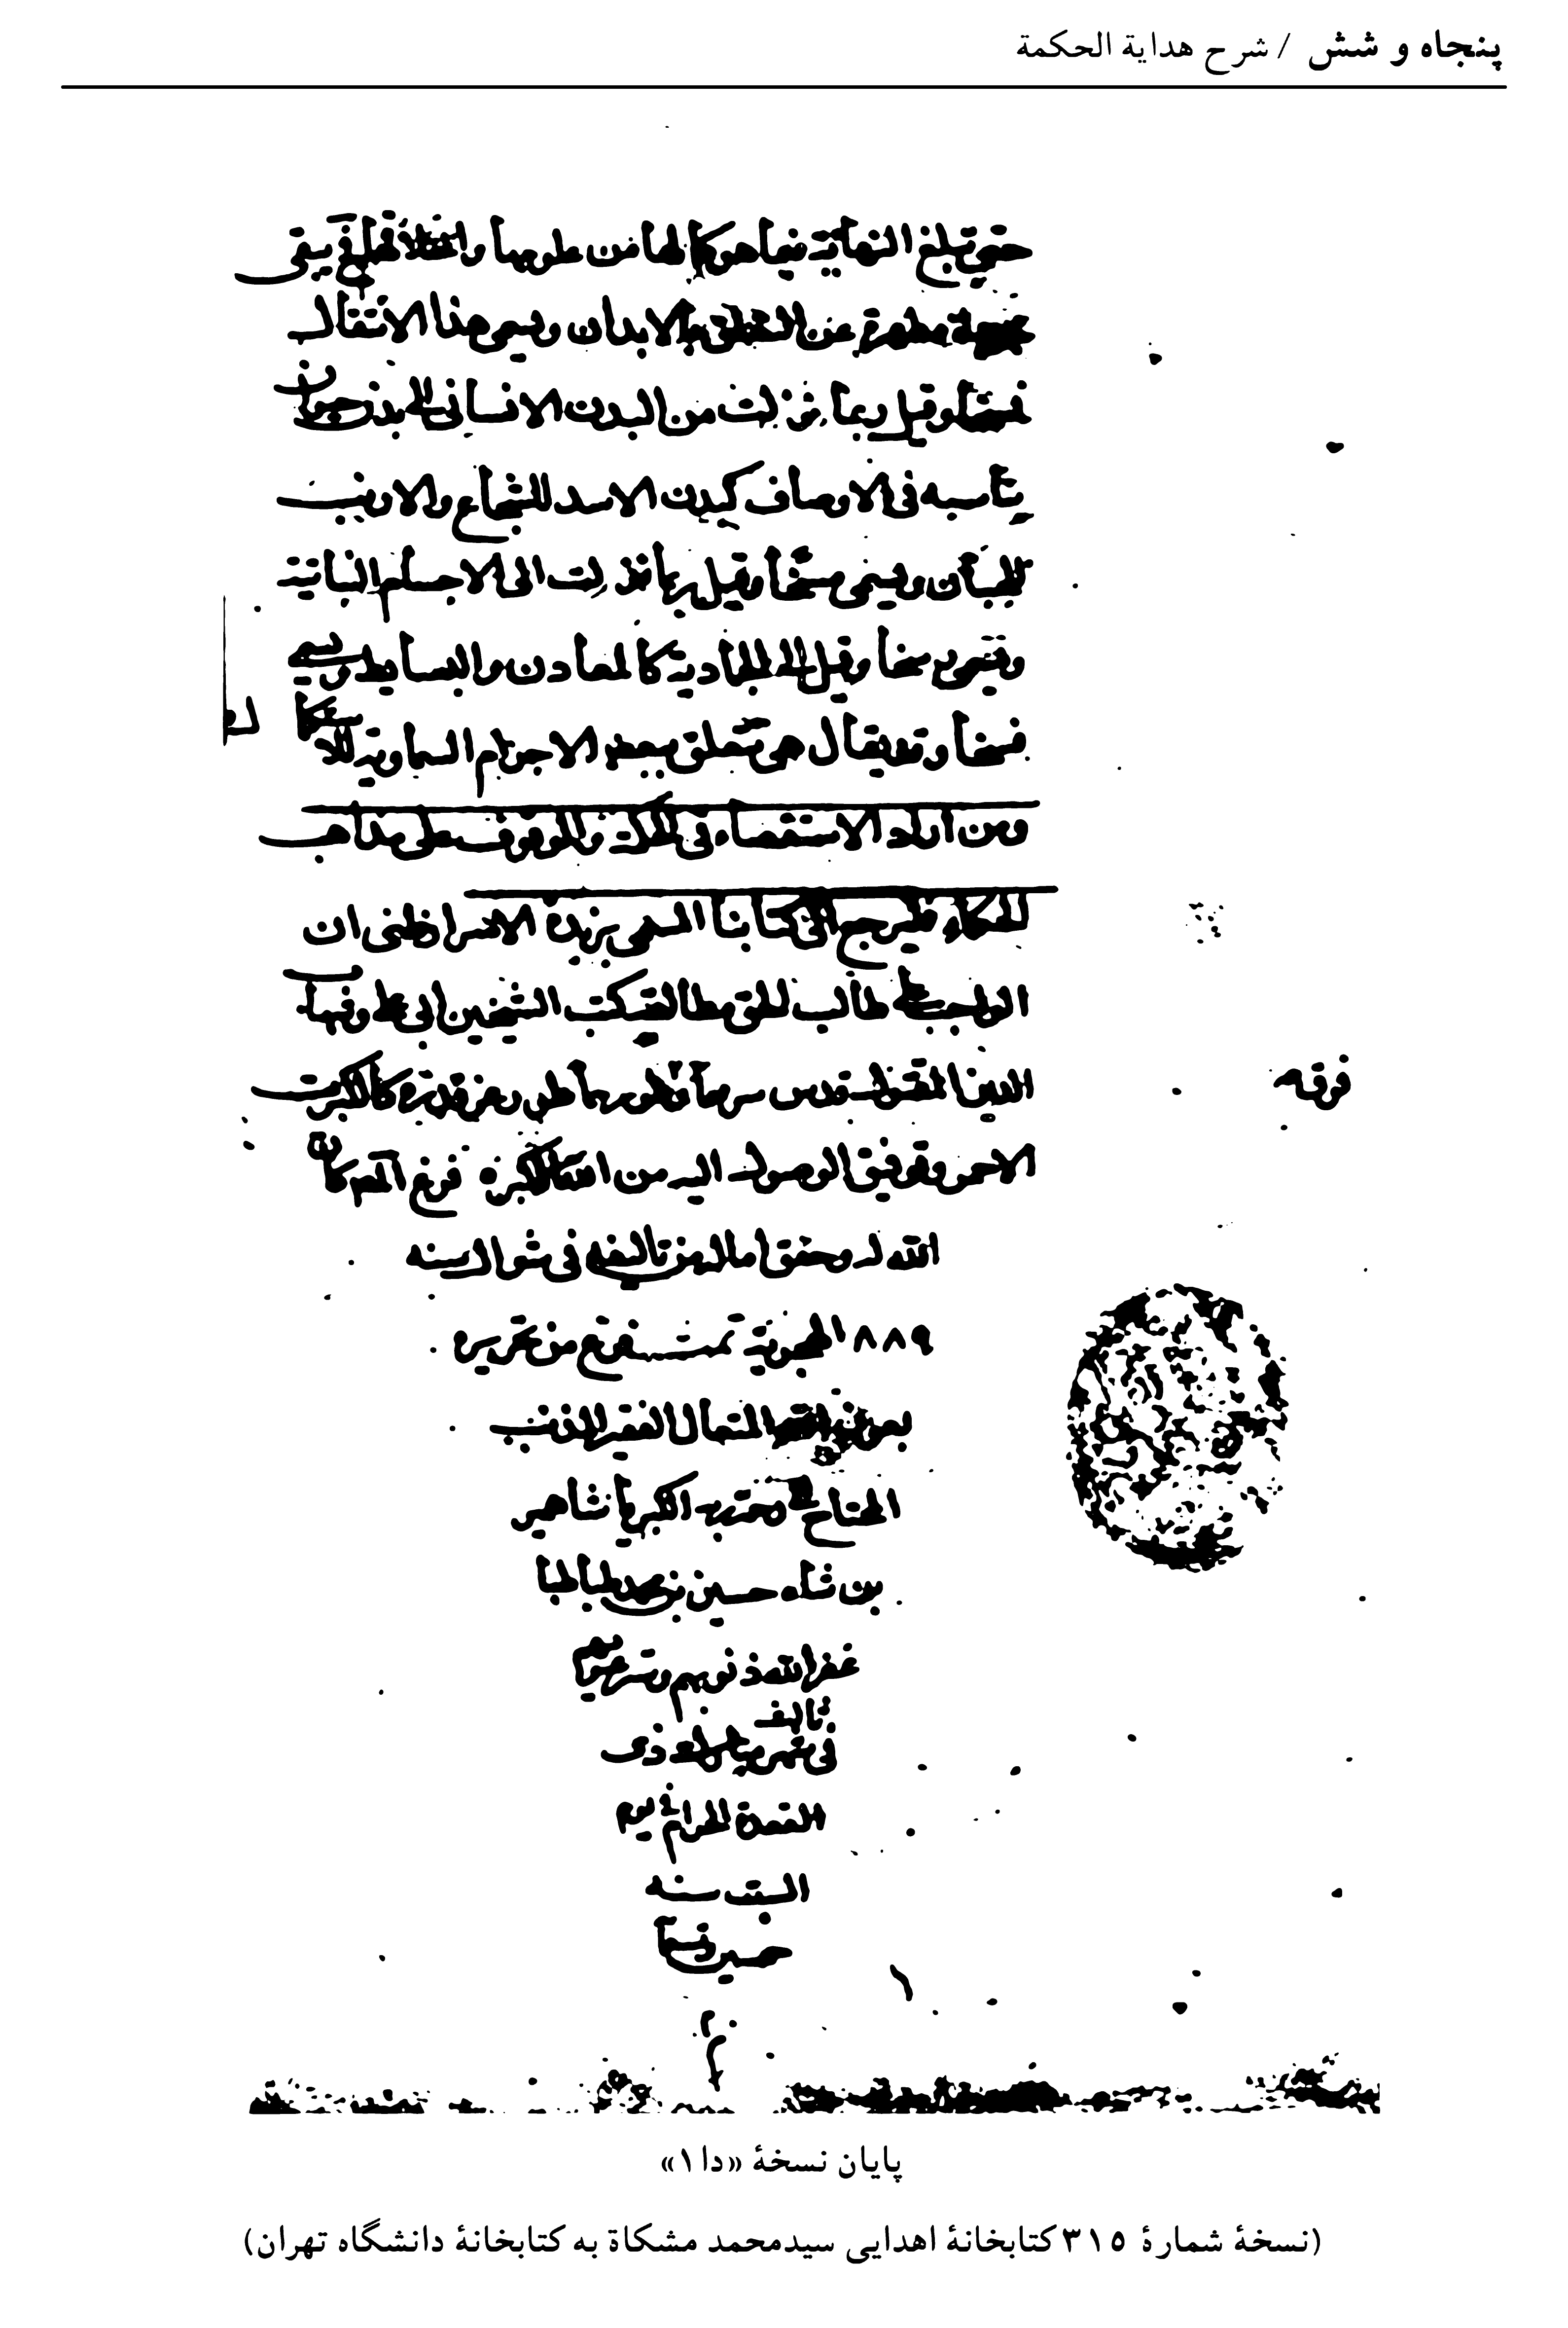 پنجاه و شش / شرح هداية الحكمة
حتى تبلغ النهاية فيما هو كمالها من علومها واخلاقها فح يبقى
مجردة مطهرة عن التعلق بالابدان ويسمى هذا الانتقال
نسخا وقيل ربما نزلت من البدن الانسانى الى بدن حيوان
يناسبه فى الاوصاف كبدن الاسد للشجاع والارنب
للجبان ويسمى مسخا وقيل ربما نزلت الى الاجسام النباتية
ويسمى رسخا وقيل الى الجمادية كالمعادن والبسايط ويسمى
فسخا وقد يقال هى تتعلق ببعض الاجرام السماوية للاستكمال
ومن اراد الاستقصاء فى الحكمة والوقوف على مذاهب
الحكماء فليرجع الى كتابنا المسمى بزبدة الاسرار ظنى ان
الواجب على طالب الحق مطالعة كتب الشيخين ابى على وشهاب
الدين المقتول قدس سرهما وطورهما طور رمز قدره كالكبريت
فوقه
الاحمر وتوفيق الوصول اليه من الله الاكبر فرغ المص كان
الله له وحقق اماله من تاليفه فى شوال سنه
٨٨٩ الهجرية تمت فرغ من تحريره
بعون الله المتعال الفقير المذنب
المحتاج الى رحمة ربه اكبر يا شاهير
بن شاه حسين بن محمد طباطبا
غفر الله ذنوبهم وستر عيوبهم
فى شهر ذى
القعدة الحرام فى يوم
السبت سنه
پایان نسخهٔ «دا ۱»
(نسخهٔ شمارهٔ ۳۱۵ کتابخانهٔ اهدایی سیدمحمد مشکاة به کتابخانهٔ دانشگاه تهران)